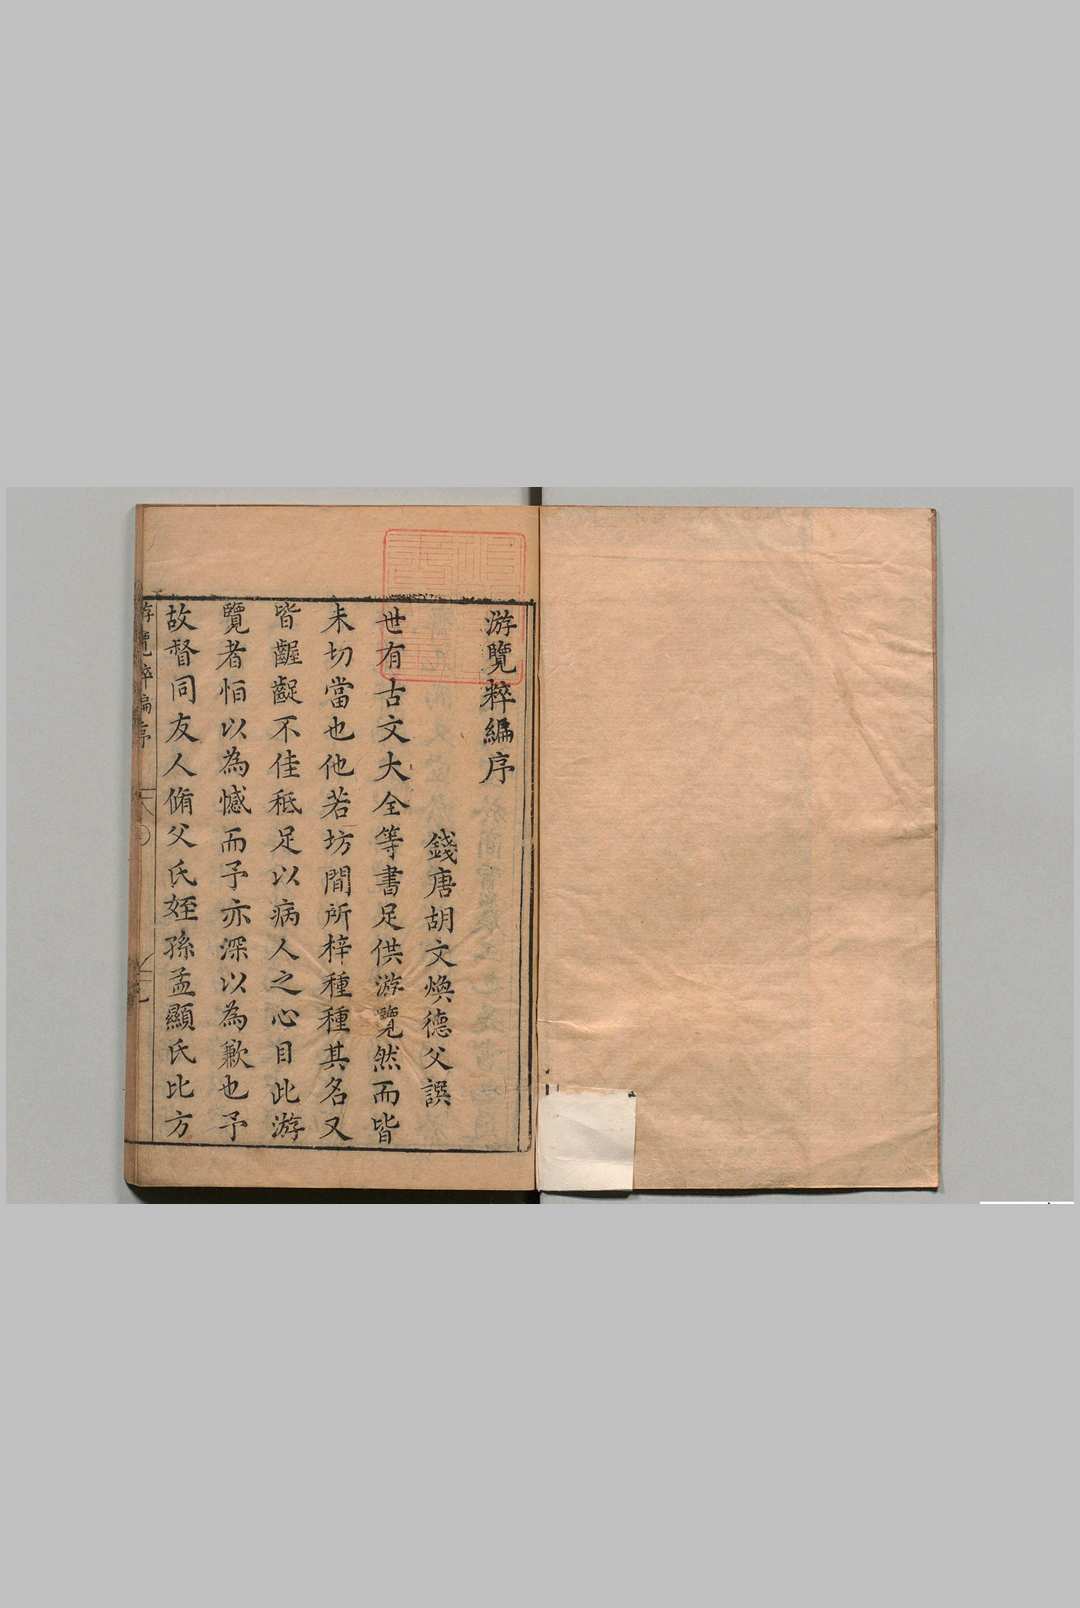 游覽粹編序
錢唐胡文煥德父譔
世有古文大全等書足供游覽然而皆
未切當也他若坊間所梓種種其名又
皆齷齪不佳秪足以病人之心目此游
覽者怕以為憾而予亦深以為歉也予
故督同友人脩父氏姪孫孟顯氏比方
游覽粹編序